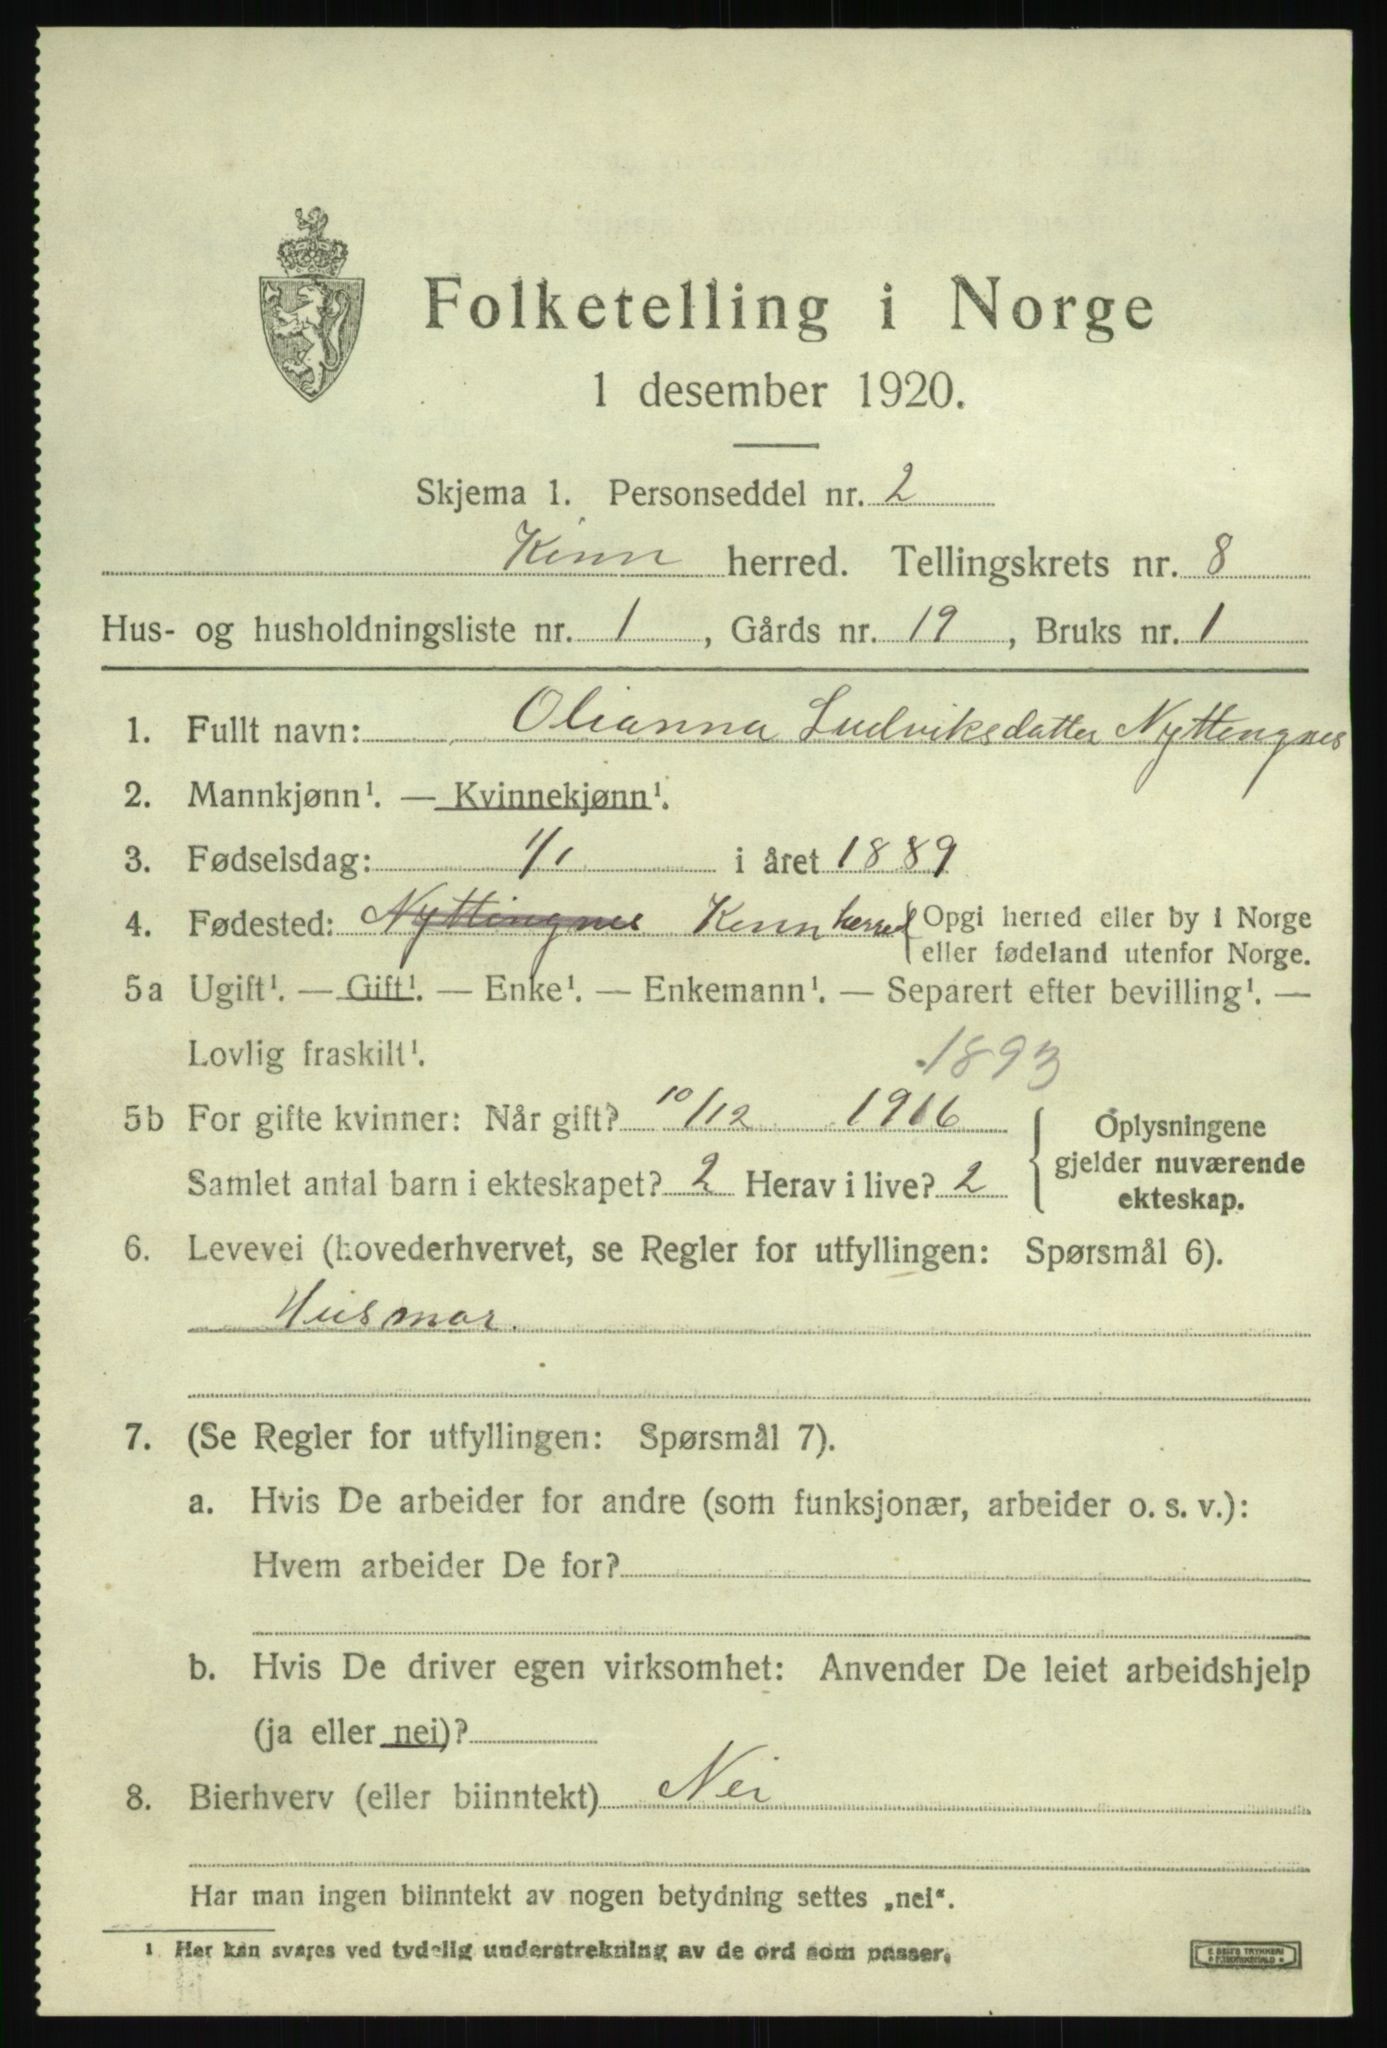 Folketelling i Norge
1 desember 1920.
Skjema 1. Personseddel nr. 2
Kinn herred. Tellingskrets nr. 8
Hus- og husholdningsliste nr. 1, Gårds nr. 19, Bruks nr. 1
1. Fullt navn: Olianna Ludviksdatter Nyttingnes
2. Mannkjønn¹. — Kvinnekjønn¹.
3. Fødselsdag: 1/1 i året 1889
4. Fødested: Nyttingnes Kinn herred { Opgi herred eller by i Norge
eller fødeland utenfor Norge.
5a Ugift¹. — Gift¹. — Enke¹. — Enkemann¹. — Separert efter bevilling¹. —
Lovlig fraskilt¹.
1893
5b For gifte kvinner: Når gift? 10/12 1916
Samlet antal barn i ekteskapet? 2 Herav i live? 2
Oplysningene
gjelder nuværende
ekteskap.
6. Levevei (hovederhvervet, se Regler for utfyllingen: Spørsmål 6).
Husmor.
7. (Se Regler for utfyllingen: Spørsmål 7).
a. Hvis De arbeider for andre (som funksjonær, arbeider o. s. v.):
Hvem arbeider De for?
b. Hvis De driver egen virksomhet: Anvender De leiet arbeidshjelp
(ja eller nei)?
8. Bierhverv (eller biinntekt) Nei
Har man ingen biinntekt av nogen betydning settes „nei".
¹ Her kan svares ved tydelig understrekning av de ord som passer.